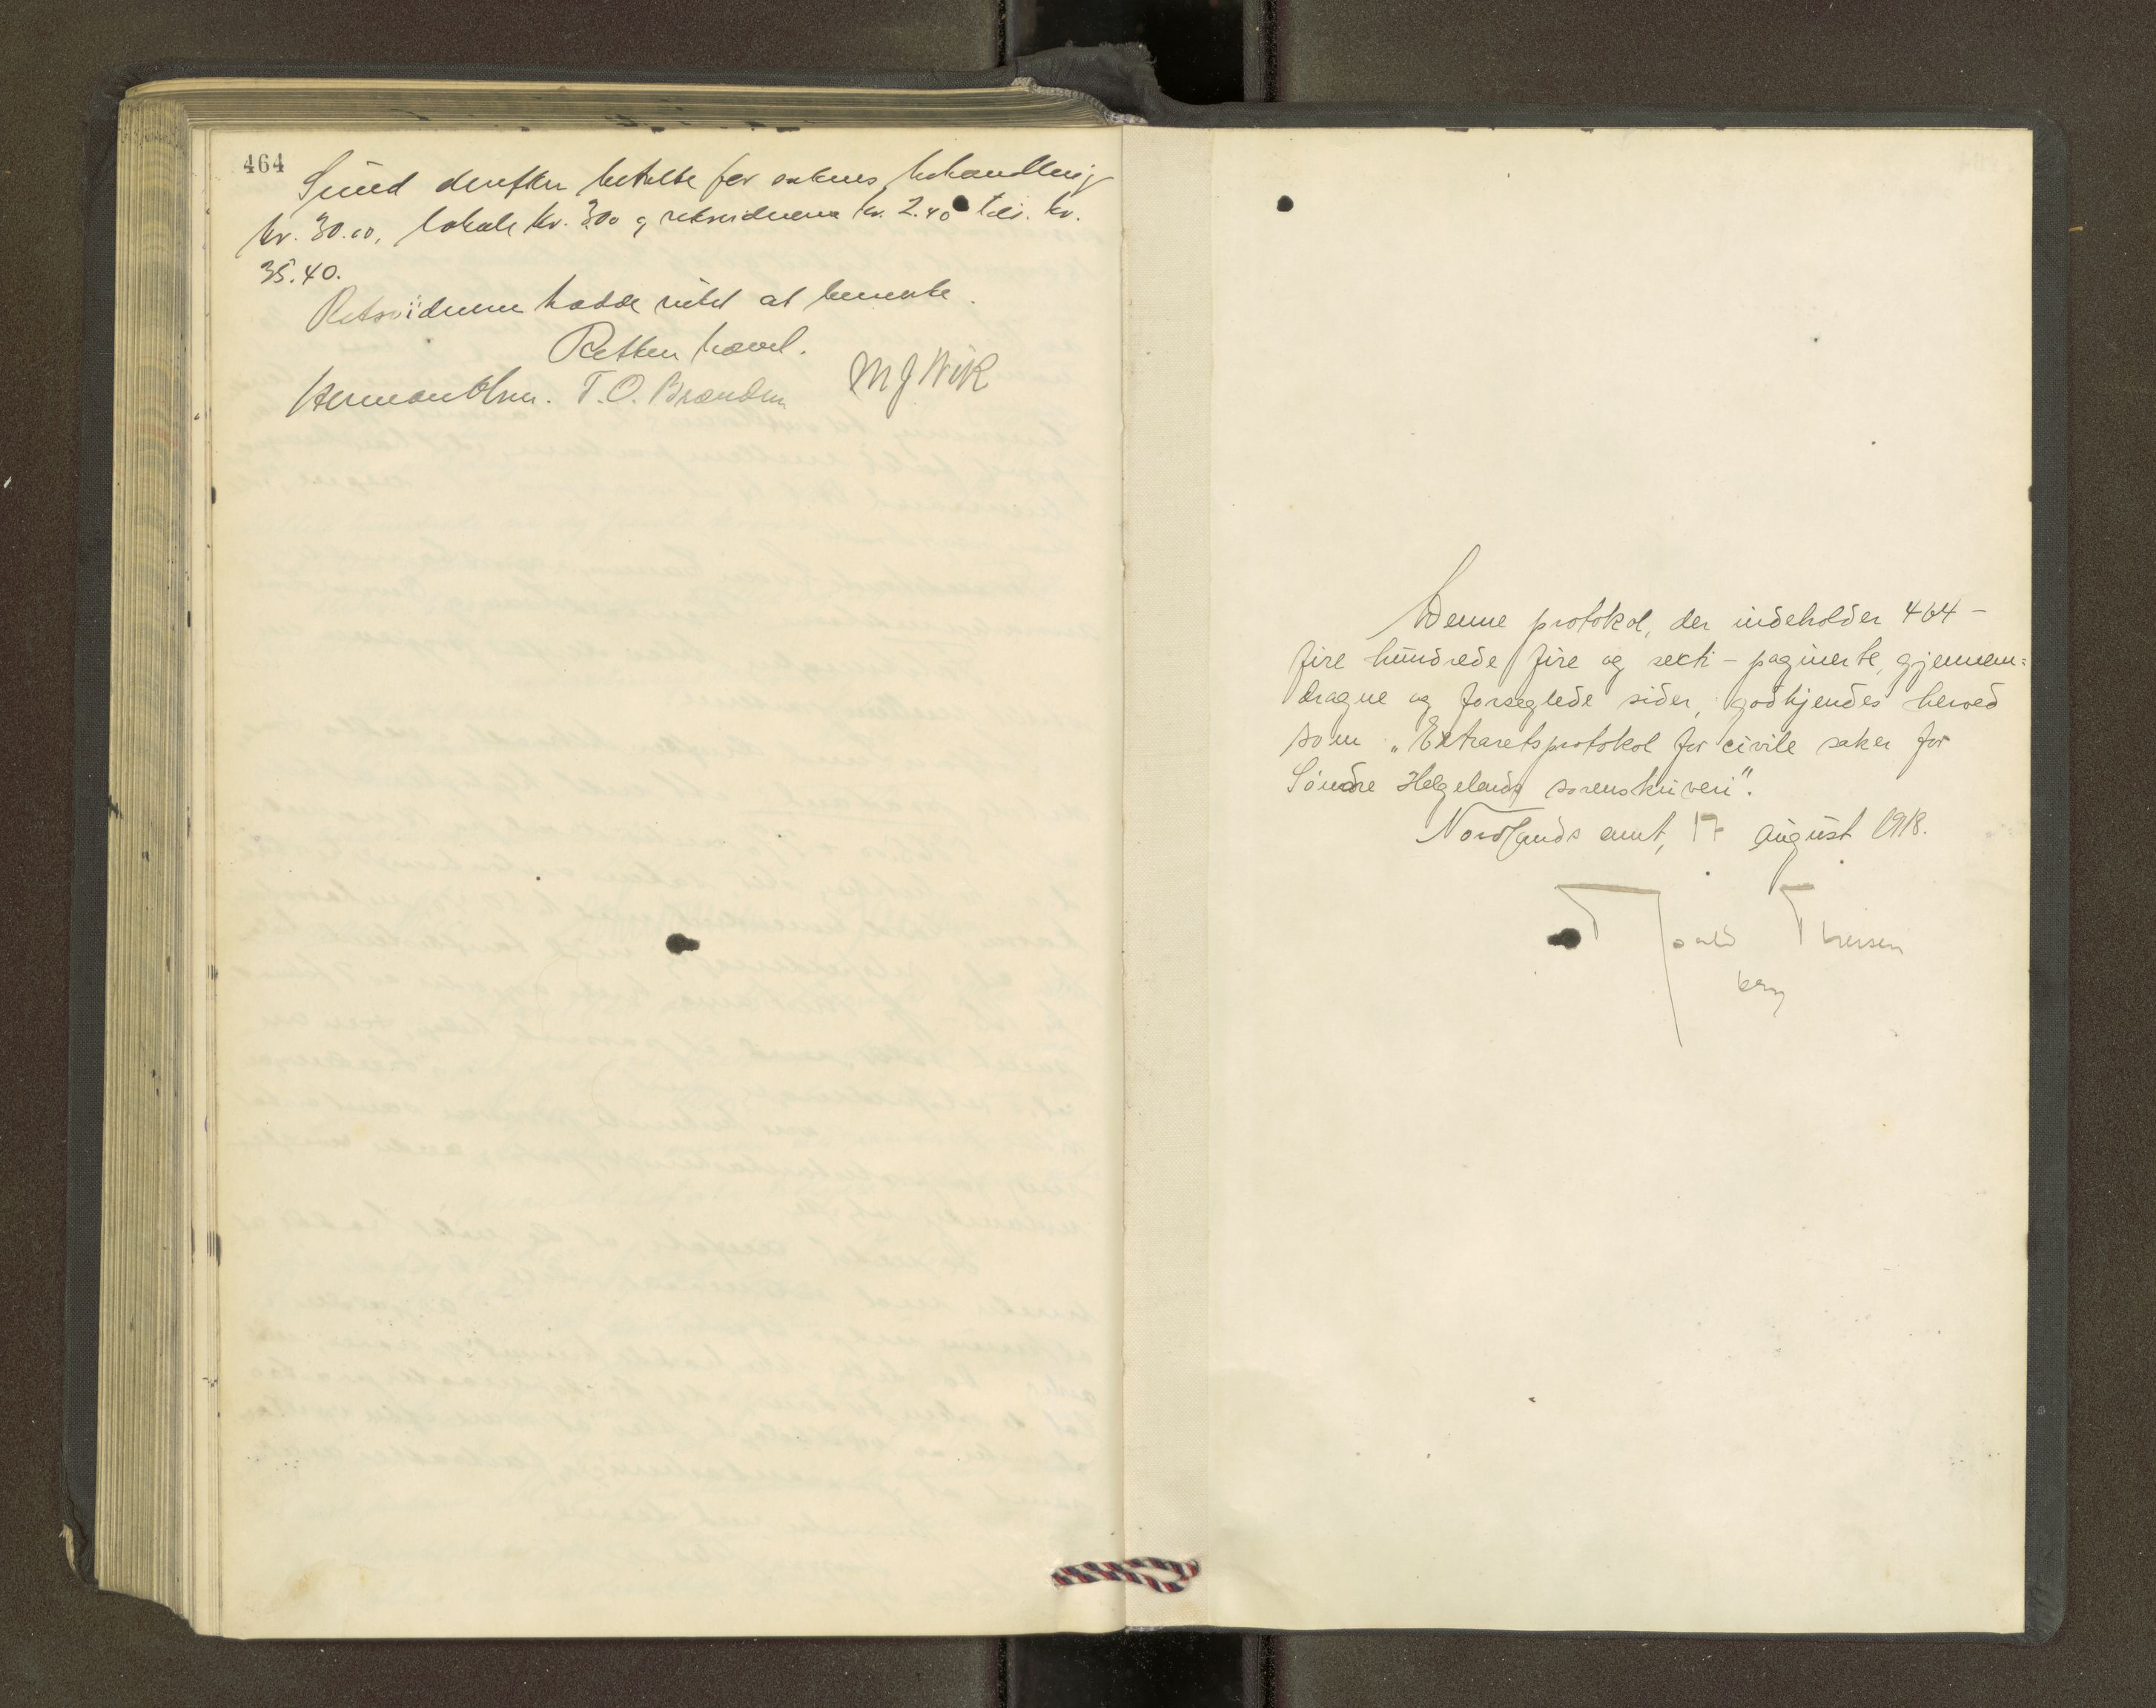 464
Sund derefter betalte for sakens behandling
kr. 30.00, lokale kr. 3.00 og retsvidnerne kr. 2.40 tils. kr.
35.40.
Retsvidnerne hadde intet at bemerke.
Retten hævet.
Herman Olsen. T. O. Brændmo M J Wik
Denne protokol, der indeholder 464 -
fire hundrede fire og sexti - paginerte, gjennem=
dragne og forseglede sider, godkjendes herved
som „Extraretsprotokol for civile saker for
Søndre Helgelands sorenskriveri".
Nordlands amt, 17 august 1918.